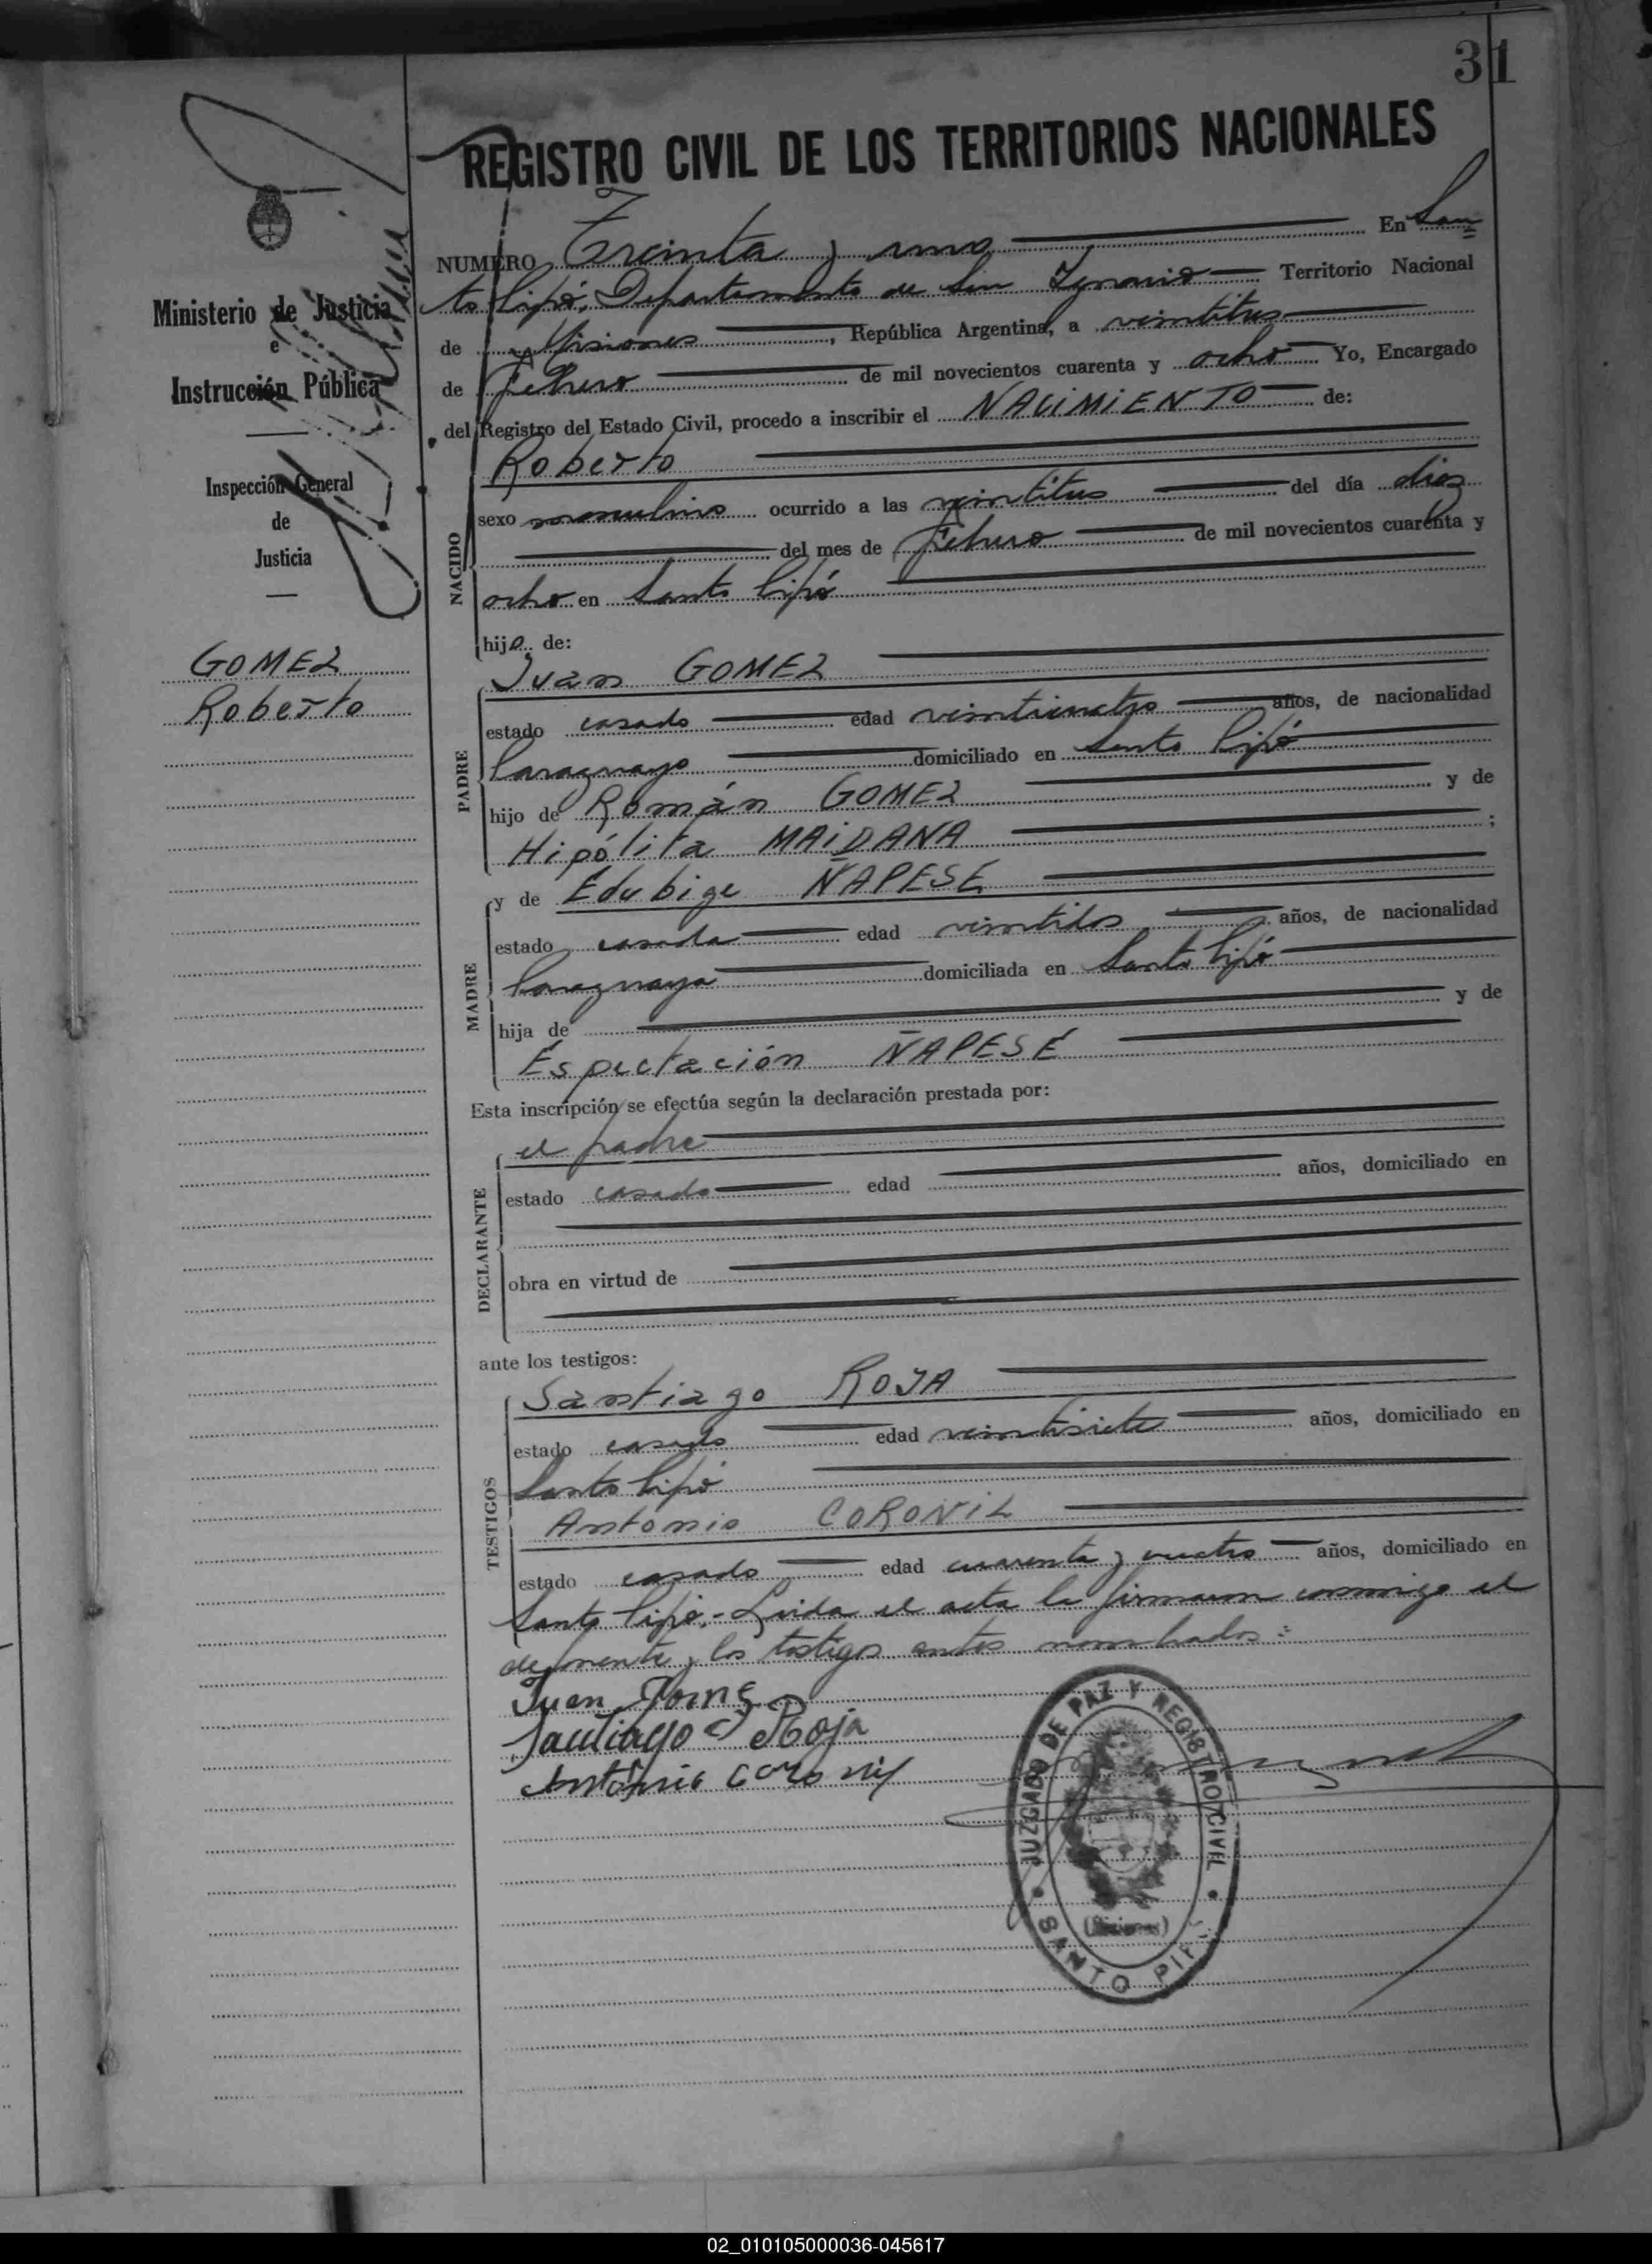 31
REGISTRO CIVIL DE LOS TERRITORIOS NACIONALES
NUMERO Treinta y uno En San
to Pipó, Departamento de San Ignacio Territorio Nacional
de Misiones, República Argentina, a veintitres
de Febrero de mil novecientos cuarenta y ocho Yo, Encargado
del Registro del Estado Civil, procedo a inscribir el NACIMIENTO de:
Ministerio de Justicia
e
Instrucción Pública
Inspección General
de
Justicia
GOMEZ
Roberto
NACIDO
Roberto
sexo masculino ocurrido a las veintitres del día diez
del mes de Febrero de mil novecientos cuarenta y
ocho en Santo Pipó
hijo de:
PADRE
Juan GOMEZ
estado casado edad veinticuatro años, de nacionalidad
Paraguayo domiciliado en Santo Pipó
hijo de Román GOMEZ y de
Hipólita MAIDANA ;
MADRE
y de Edubige ÑAPESE
estado casada edad veintidos años, de nacionalidad
Paraguaya domiciliada en Santo Pipó
hija de y de
Espectación ÑAPESE
Esta inscripción se efectúa según la declaración prestada por:
DECLARANTE
el padre
estado casado edad años, domiciliado en
obra en virtud de
ante los testigos:
TESTIGOS
Santiago ROJA
estado casado edad veintisiete años, domiciliado en
Santo Pipó
Antonio CORONIL
estado casado edad cuarenta y cuatro años, domiciliado en
Santo Pipó.- Leida el acta la firmaron conmigo el
deponente y los testigos antes nombrados:
Juan Gomez
Santiago Roja
Antonio Coronil
JUZGADO DE PAZ Y REGISTRO CIVIL
(Misiones)
SANTO PIPÓ
02_010105000036-045617